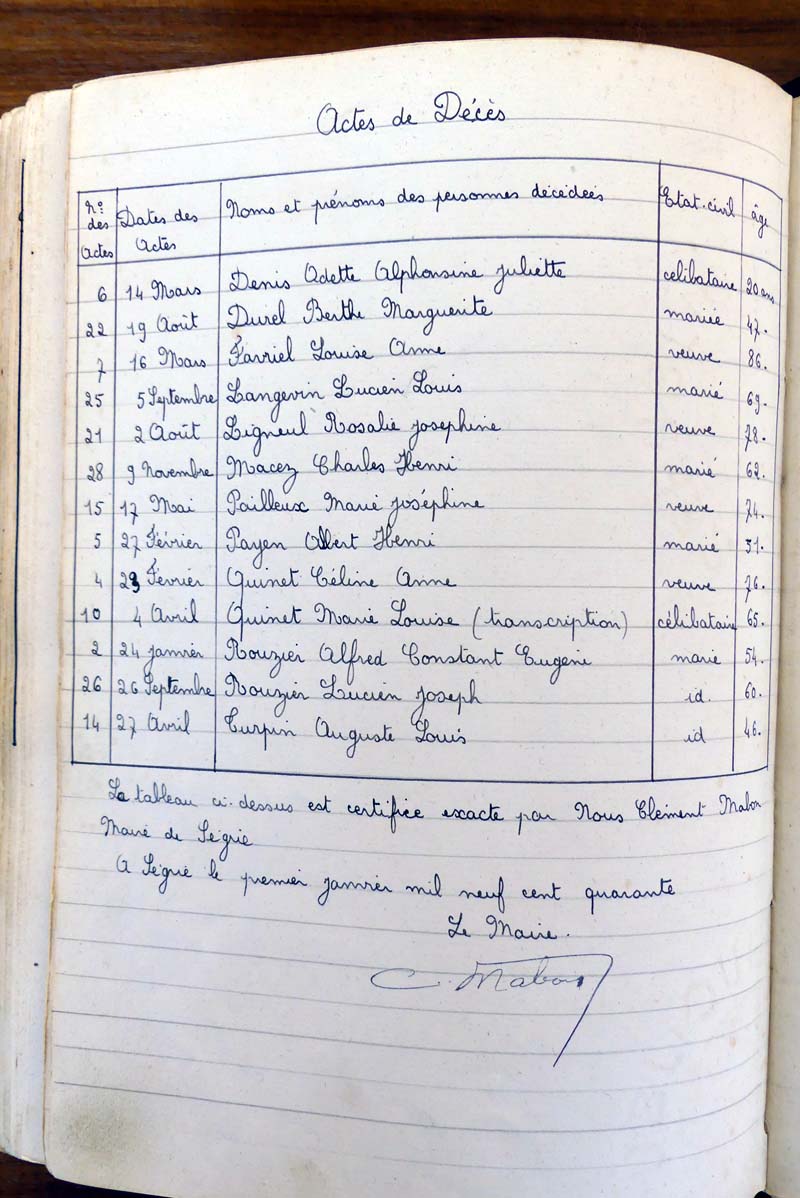 Actes de Décès
No des Actes Dates des Actes Noms et prénoms des personnes décédées Etat-civil âge
6 14 Mars Denis Odette Alphonsine Juliette célibataire 20 ans
22 19 Août Durel Berthe Marguerite mariée 47.
7 16 Mars Favriel Louise Anne veuve 86.
25 5 Septembre Langevin Lucien Louis marié 69.
21 2 Août Ligneul Rosalie Joséphine veuve 78.
28 9 Novembre Macez Charles Henri marié 62.
15 17 Mai Pailleux Marie Joséphine veuve 74.
5 27 Février Payen Albert Henri marié 51.
4 23 Février Quinet Céline Anne veuve 76.
10 4 Avril Quinet Marie Louise (transcription) célibataire 65.
2 24 janvier Rouzier Alfred Constant Eugène marié 54.
26 26 Septembre Rouzier Lucien Joseph id. 60.
14 27 Avril Turpin Auguste Louis id 46.
Le tableau ci-dessus est certifiée exacte par Nous Clément Mabon
Maire de Ségrie
A Ségrie le premier janvier mil neuf cent quarante
Le Maire.
C. Mabon